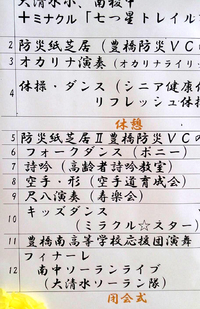 大清水小、南稜中
＋ミナクル「七つ星トレイル
2 防災紙芝居（豊橋防災ＶＣ
3 オカリナ演奏（オカリナライリッ
4 体操・ダンス（シニア健康体
リフレッシュ体操
休憩
5 防災紙芝居Ⅱ豊橋防災ＶＣの
6 フォークダンス（ポニー）
7 詩吟（高齢者詩吟教室）
8 空手・形（空手道育成会）
9 尺八演奏（寿楽会）
10 キッズダンス
（ミラクル☆スター）
11 豊橋南高等学校応援団演舞
12 フィナーレ
南中ソーランライブ
（大清水ソーラン隊）
閉会式